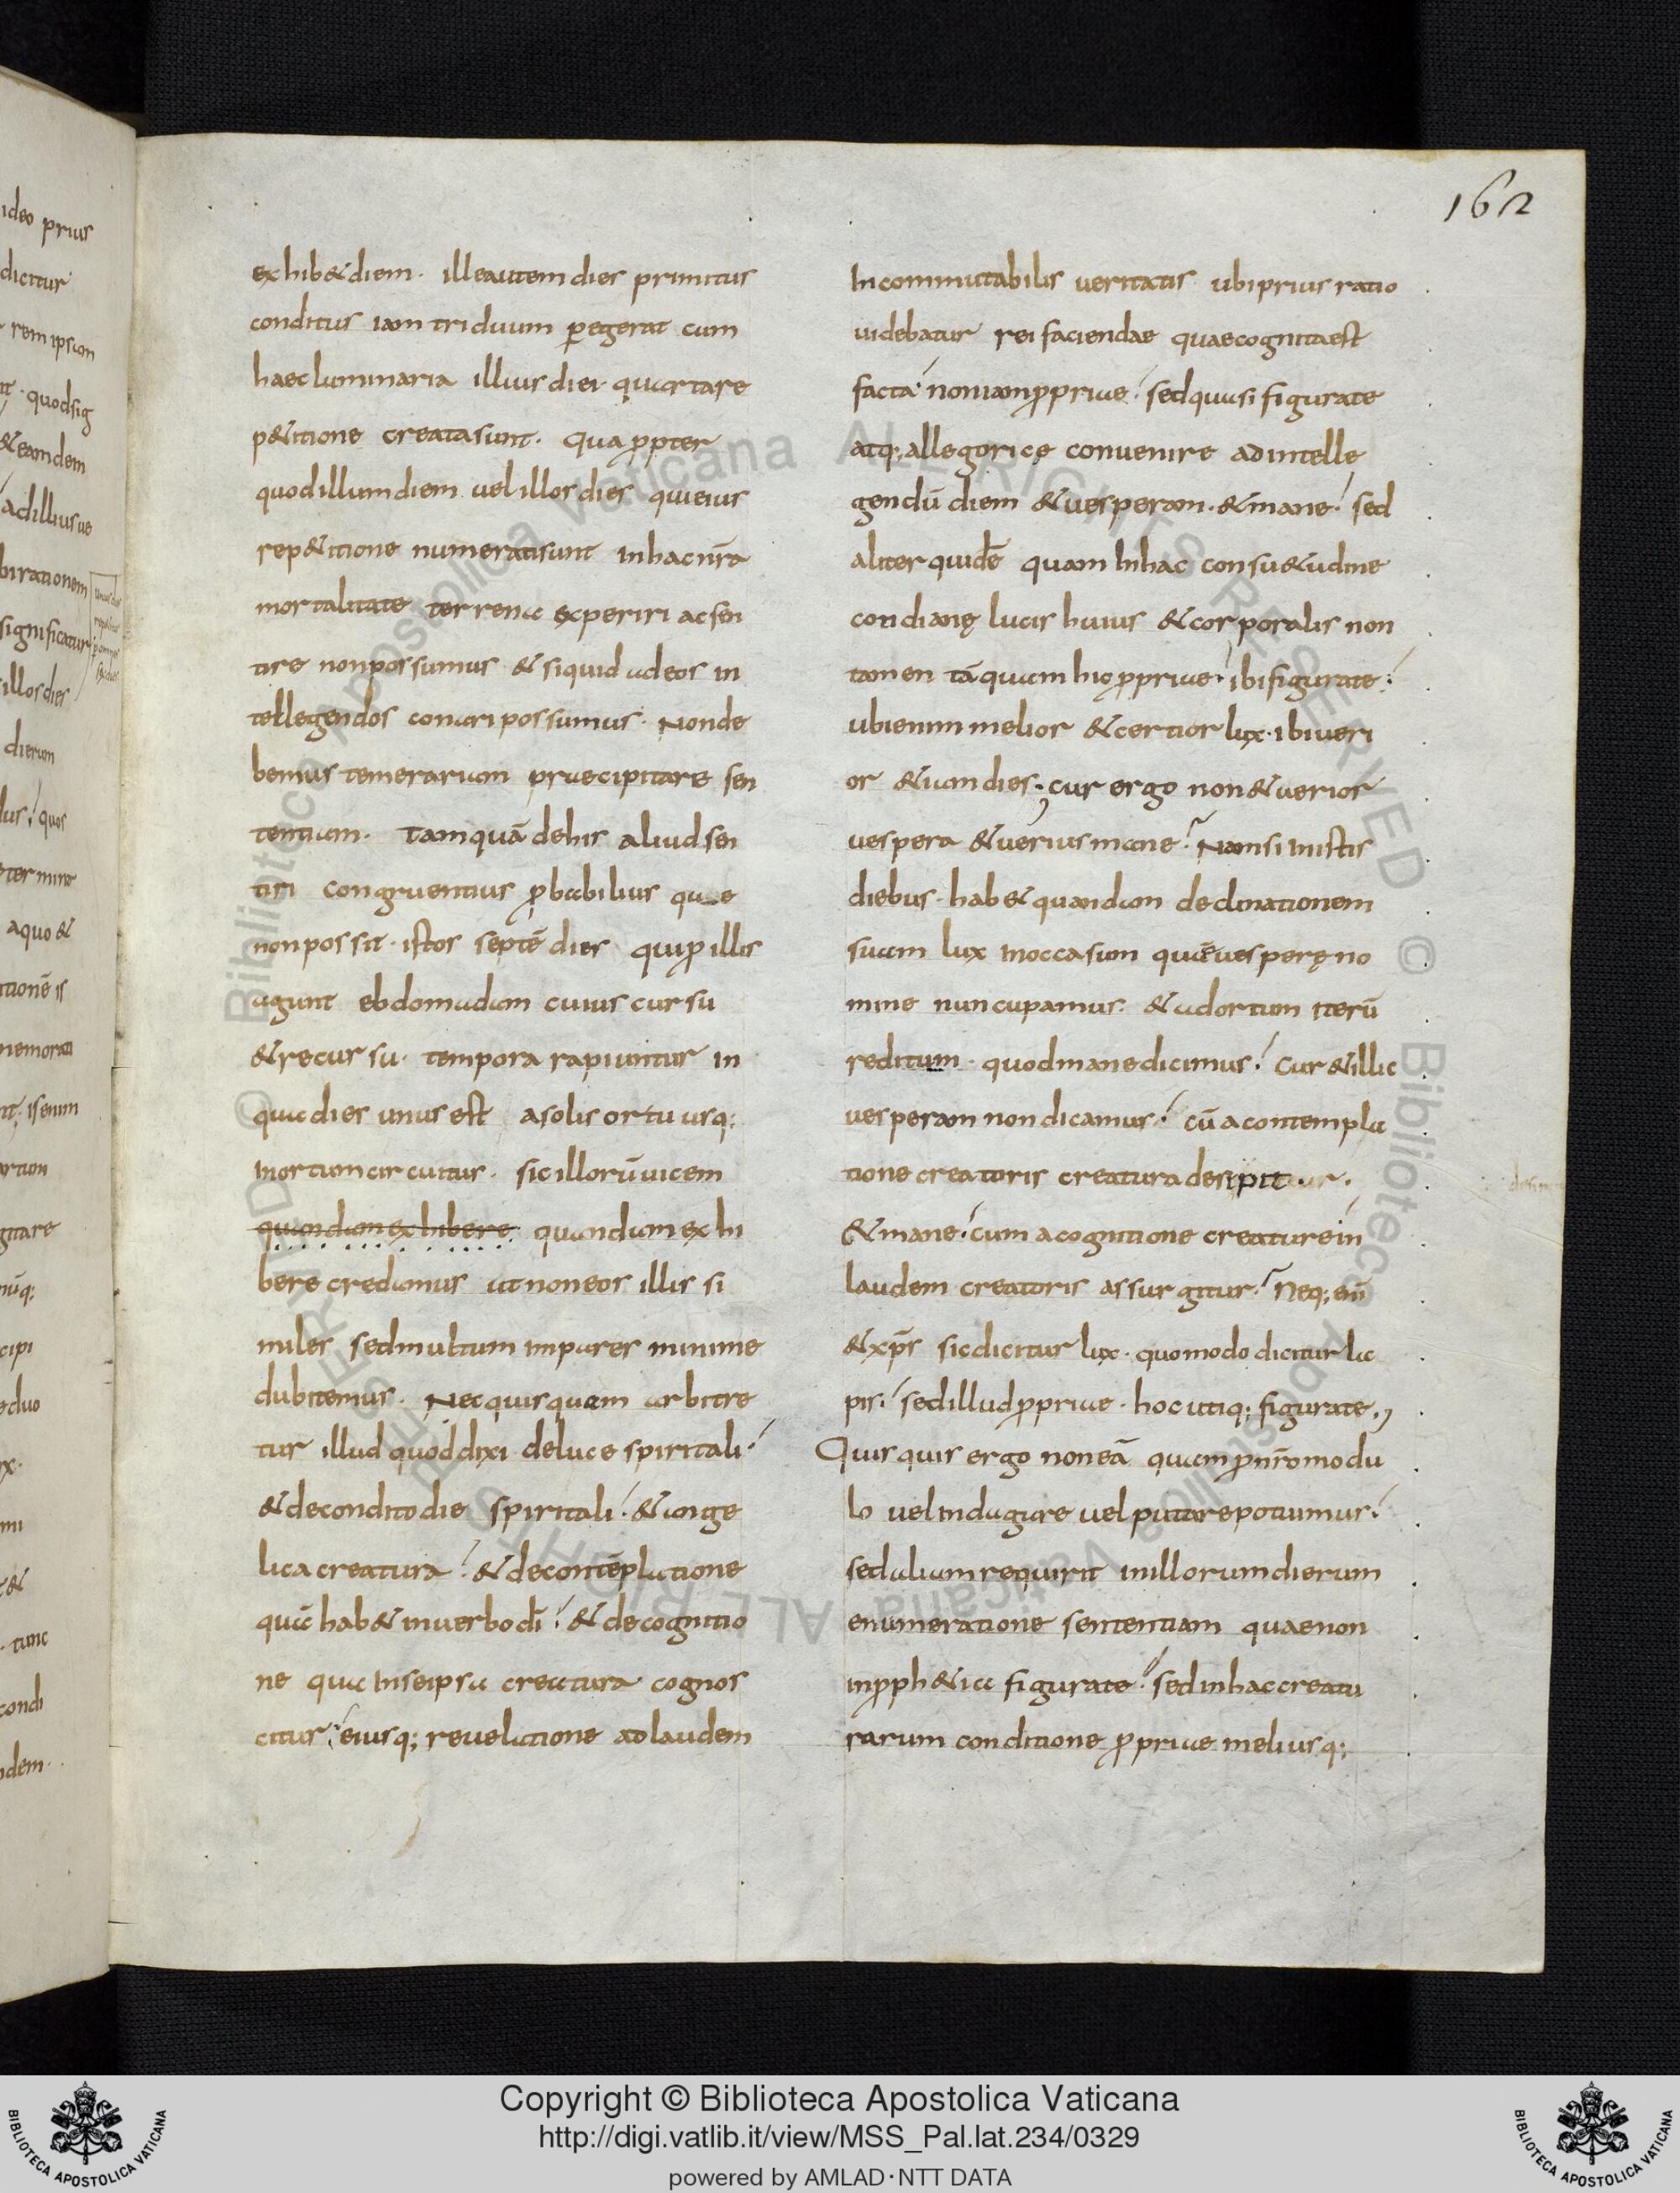 162
exhib& diem · ille autem dies primitus
conditus iam triduum p̱egerat cum
haec luminaria illius diei quartare
p&itione creata sunt · Qua ꝓpter
quod illum diem vel illos dies qui eius
rep&itione numerati sunt in hac nr̄a
mortalitate terrena experiri ac sen
tire non possumus & siquid ad eos in
tellegendos conari possumus · Non de
bemus temerariam praecipitare sen
tentiam · Tamquā de his aliud sen
tiri congruentius ꝓbabilius que
non possit · istos septē dies qui ꝓ illis
agunt ebdomadam cuius cursu
& recursu · tempora rapiuntur in
qua dies unus est a solis ortu usq;
in ortum circuitus · sic illorū vicem
quandam exhibere quandam exhi
bere credamus ut non eos illis si
miles sed multum impares minime
dubitemus · Nec quisquam arbitre
tur illud quod dixi de luce spiritali ·
& de condito die spiritali · & ange
lica creatura · & de contēplatione
quā hab& in verbo dī · & de cognitio
ne qua in se ipsa creatura cognos
citur · eiusq; revelatione ad laudem
Incommutabilis veritatis ubi prius ratio
videbatur rei faciendae quae cognita est
facta · non iam ꝓpriae · sed quasi figurate
atq; allegoricę convenire ad intelle
gendū diem & vesperam · & mane · sed
aliter quidē quam in hac consu&udine
cotidianę lucis huius & corporalis non
tamen tā quam hic ꝓpriae · ibi figurate ·
ubi enim melior & certior lux · ibi veri
or & iam dies ; cur ergo non & verior
vespera & verius mane · Nam si in istis
diebus · hab& quandam declinationem
suam lux in occasum quā vesperę no
mine nuncupamus · & ad ortum iterū
reditum · quod mane dicimus · Cur & illic
vesperam non dicamus · cū a contempla
tione creatoris creatura desipit ·
& mane · cum a cognitione creature in
laudem creatoris assurgitur · Neq; enī
& xp̄s sic dicitur lux · quomodo dicitur la
pis · sed illud ꝓpriae · hoc utiq; figurate ·,
Quisquis ergo non eā quam ꝓ nr̄o modu
lo vel indagare vel putare potuimus ·
sed aliam requirit in illorum dierum
enumeratione sententiam quae non
in ꝓph&ica figurate · sed in hac creatu
rarum conditione ꝓpriae meliusq;
Copyright © Biblioteca Apostolica Vaticana
http://digi.vatlib.it/view/MSS_Pal.lat.234/0329
powered by AMLAD · NTT DATA
BIBLIOTECA APOSTOLICA VATICANA
BIBLIOTECA APOSTOLICA VATICANA